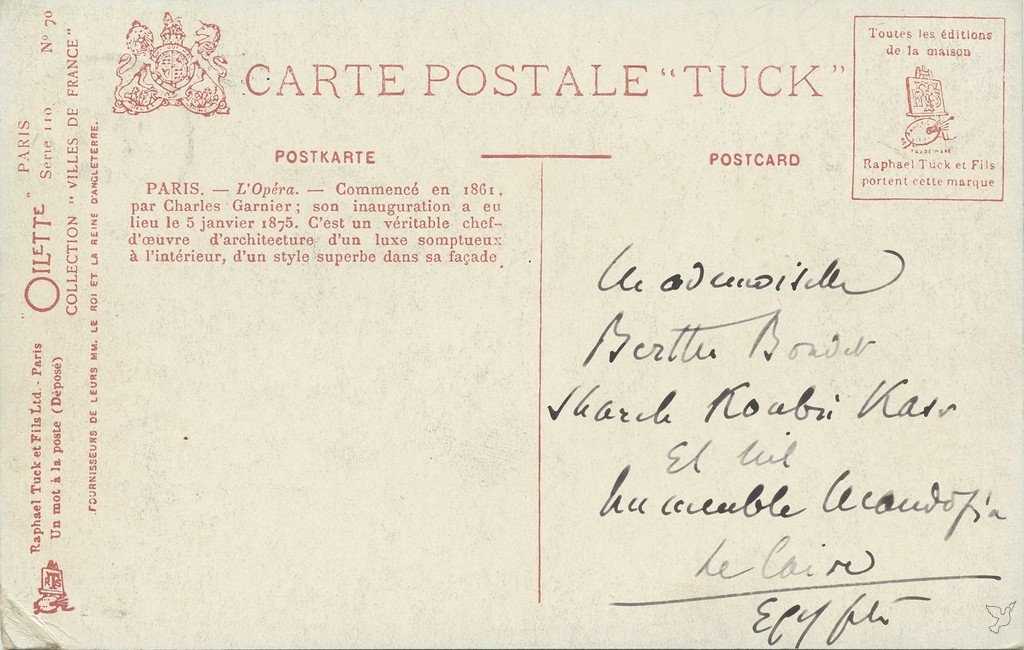 CARTE POSTALE "TUCK"
POSTKARTE
POSTCARD
Toutes les éditions
de la maison
TRADE MARK
Raphael Tuck et Fils
portent cette marque
PARIS. — L'Opéra. — Commencé en 1861,
par Charles Garnier ; son inauguration a eu
lieu le 5 janvier 1875. C'est un véritable chef-
d'œuvre d'architecture d'un luxe somptueux
à l'intérieur, d'un style superbe dans sa façade
Raphael Tuck et Fils Ltd. - Paris
Un mot à la poste (Déposé)
OILETTE" PARIS
Série 110 No 70
COLLECTION "VILLES DE FRANCE"
FOURNISSEURS DE LEURS MM. LE ROI ET LA REINE D'ANGLETERRE.
Mademoiselle
Berthe
Shareh Koubri Kasr
El Nil
Immeuble
Le Caire
Egypte